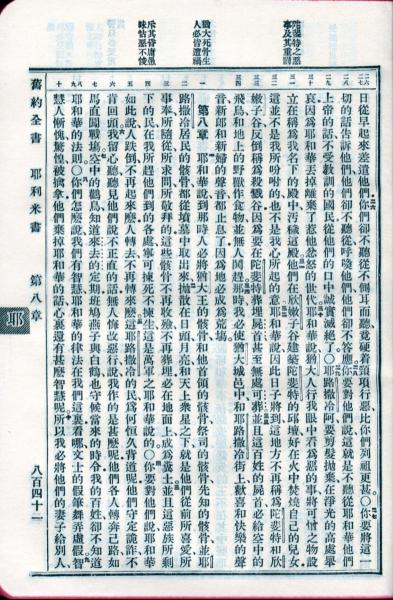 陀斐特之惡事及其重罰
猶大死骨生人必皆遭禍
斥其昏庸愚昧怙惡不悛
日從早起來差遣他們你們卻不聽從不側耳而聽竟硬着頸項行惡比你們列祖更甚○你要將這一
切的話告訴他們他們卻不聽從呼喚他們他們卻不答應你要對他們說這就是不聽從耶和華他們
上帝的話不受教訓的國民從他們的口中誠實滅絕了○耶路撒冷阿要剪髮拋棄在淨光的高處舉
哀因爲耶和華丟掉離棄了惹他忿怒的世代耶和華說猶大人行我眼中看爲惡的事將可憎之物設
立在稱爲我名下的殿中汚穢這殿他們在欣嫩子谷建築陀斐特的邱壇好在火中焚燒自己的兒女
這並不是我所吩咐的也不是我心所起的意因此日子將到這地方不再稱爲陀斐特和欣
嫩子谷反倒稱爲殺戮谷因爲要在陀斐特葬埋屍首甚至無處可葬並且這百姓的屍首必給空中的
飛鳥和地上的野獸作食物並無人鬨趕那時我必使猶大城邑中和耶路撒冷街上歡喜和快樂的聲
音新郎和新婦的聲音都止息了因爲地必成爲荒場
第八章 耶和華說到那時人必將猶大王的骸骨和他首領的骸骨祭司的骸骨先知的骸骨並耶
路撒冷居民的骸骨都從墳墓中取出來拋散在日頭月亮和天上衆星之下就是他們從前所喜愛所
事奉所隨從所求問所敬拜的這些骸骨不再收殮不再葬埋必在地面上成爲糞土並且這惡族所剩
下的民在我所趕他們到的各處寧可揀死不揀生這是萬軍之耶和華說的○你要對他們說耶和華
如此說人跌倒不再起來麼人轉去不再轉來麼這耶路撒冷的民爲何恒久背道呢他們守定詭詐不
肯回頭我留心聽聽見他們說不正直的話無人悔改惡行說我作的是甚麼呢他們各人轉奔己路如
馬直闖戰塲空中的鸛鳥知道來去的定期班鳩燕子與白鶴也守候當來的時令我的百姓卻不知道
耶和華的法則○你們怎麼說我們有智慧耶和華的律法在我們這裏看哪文士的假筆舞弄虛假智
慧人慚愧驚惶被擒拿他們棄掉耶和華的話心裏還有甚麼智慧呢所以我必將他們的妻子給別人
舊約全書 耶利米書 第八章 八百四十一
耶